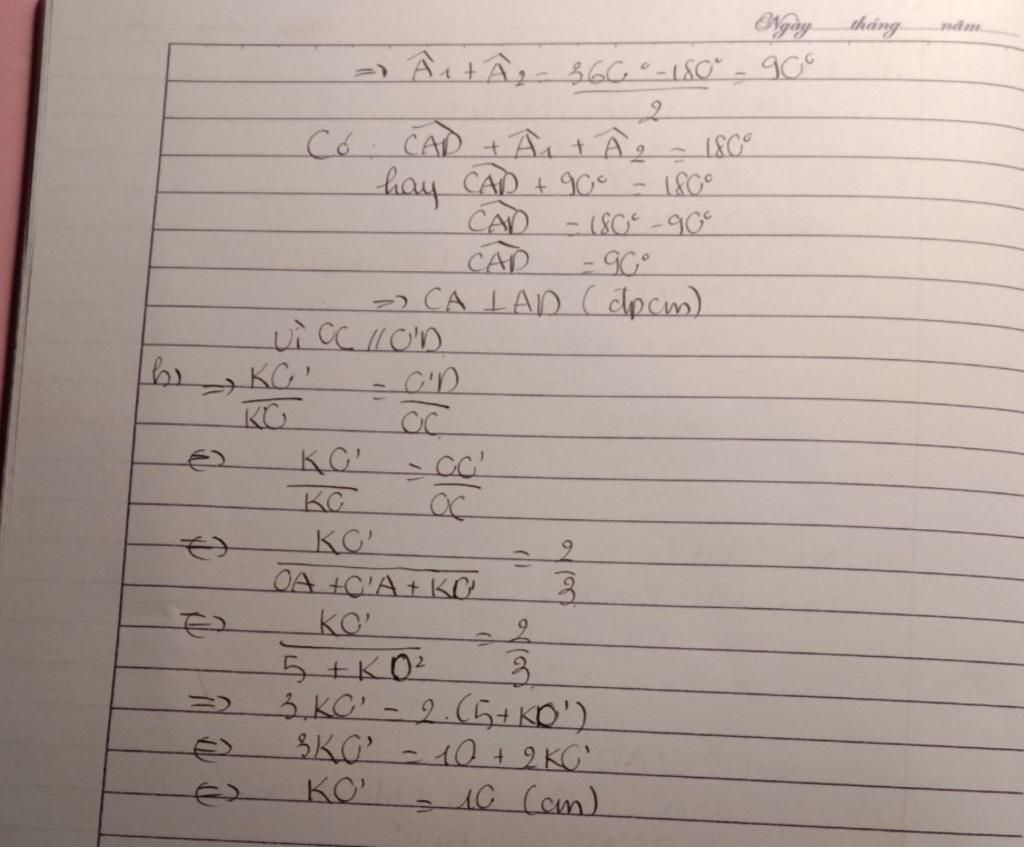 Ngày........tháng........năm........
=> Â₁ + Â₂ = (360° - 180°)/2 = 90°
Có: CAD + Â₁ + Â₂ = 180°
hay CAD + 90° = 180°
CAD = 180° - 90°
CAD = 90°
=> CA ⊥ AD (đpcm)
Vì OC // O'D
b) => KO'/KO = O'D/OC
<=> KO'/KO = OC'/OC
<=> KO'/(OA + O'A + KO') = 2/3
<=> KO'/(5 + KO') = 2/3
=> 3.KO' = 2.(5+KO')
<=> 3KO' = 10 + 2KO'
<=> KO' = 10 (cm)